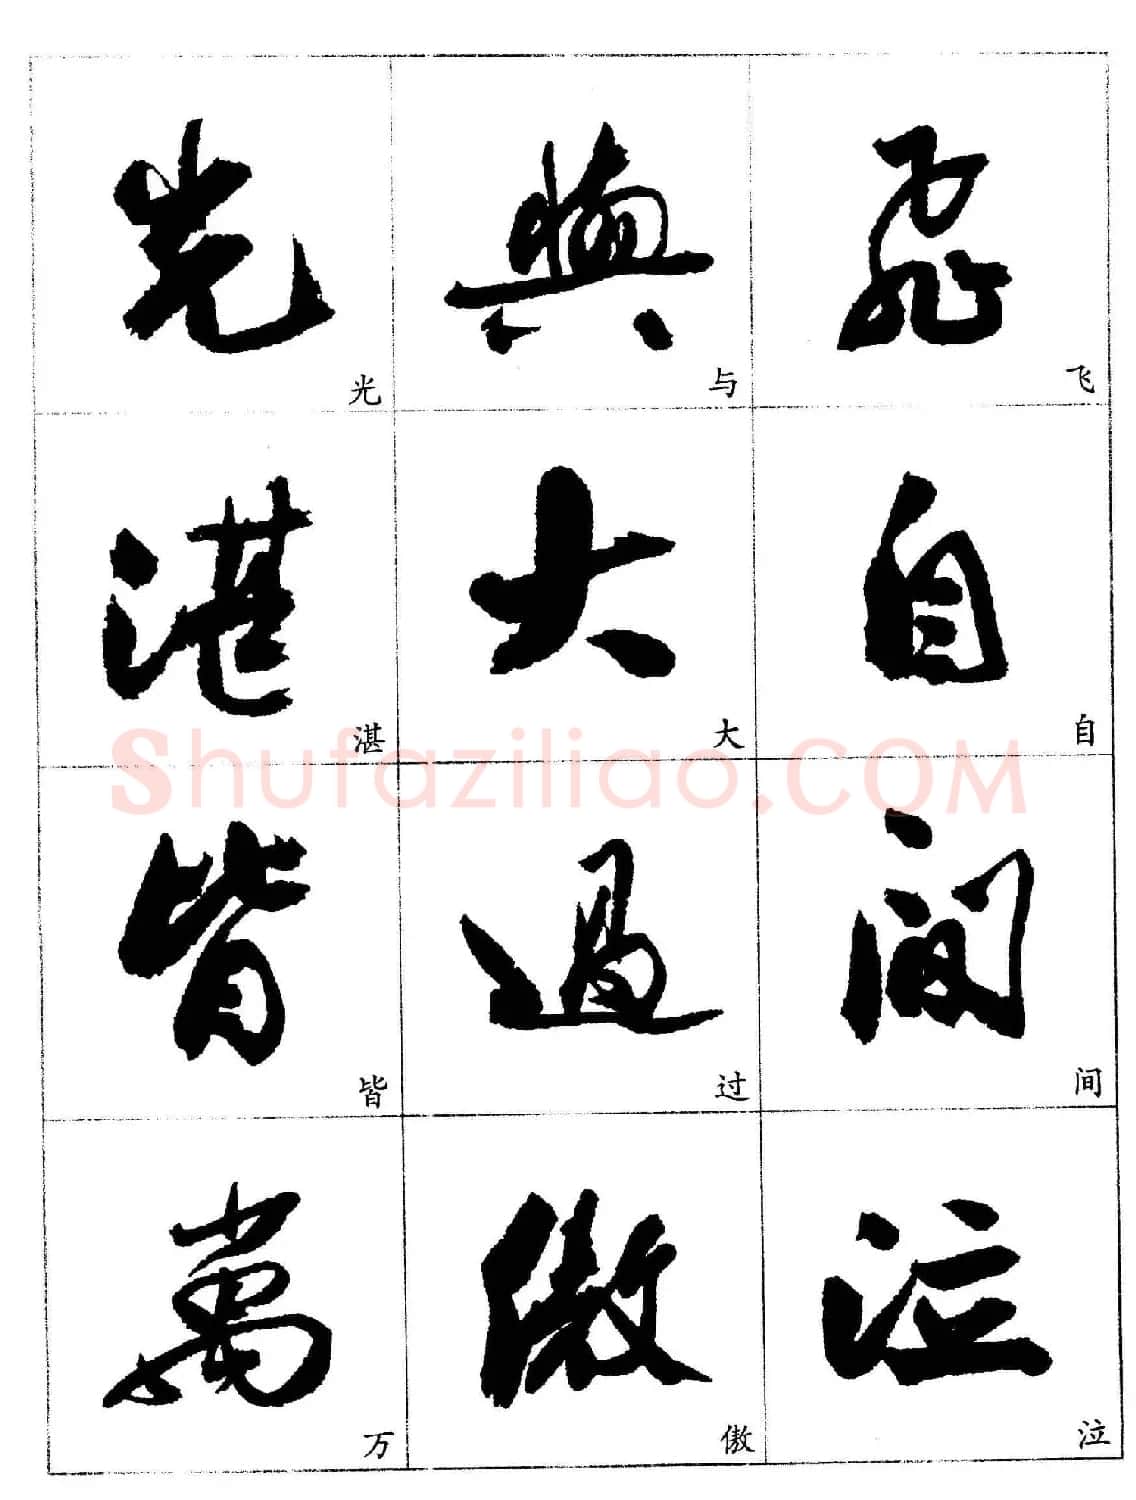 光 與 飛
光 与 飞
湛 大 自
湛 大 自
Shufaziliao.COM
皆 過 間
皆 过 间
萬 傲 泣
万 傲 泣